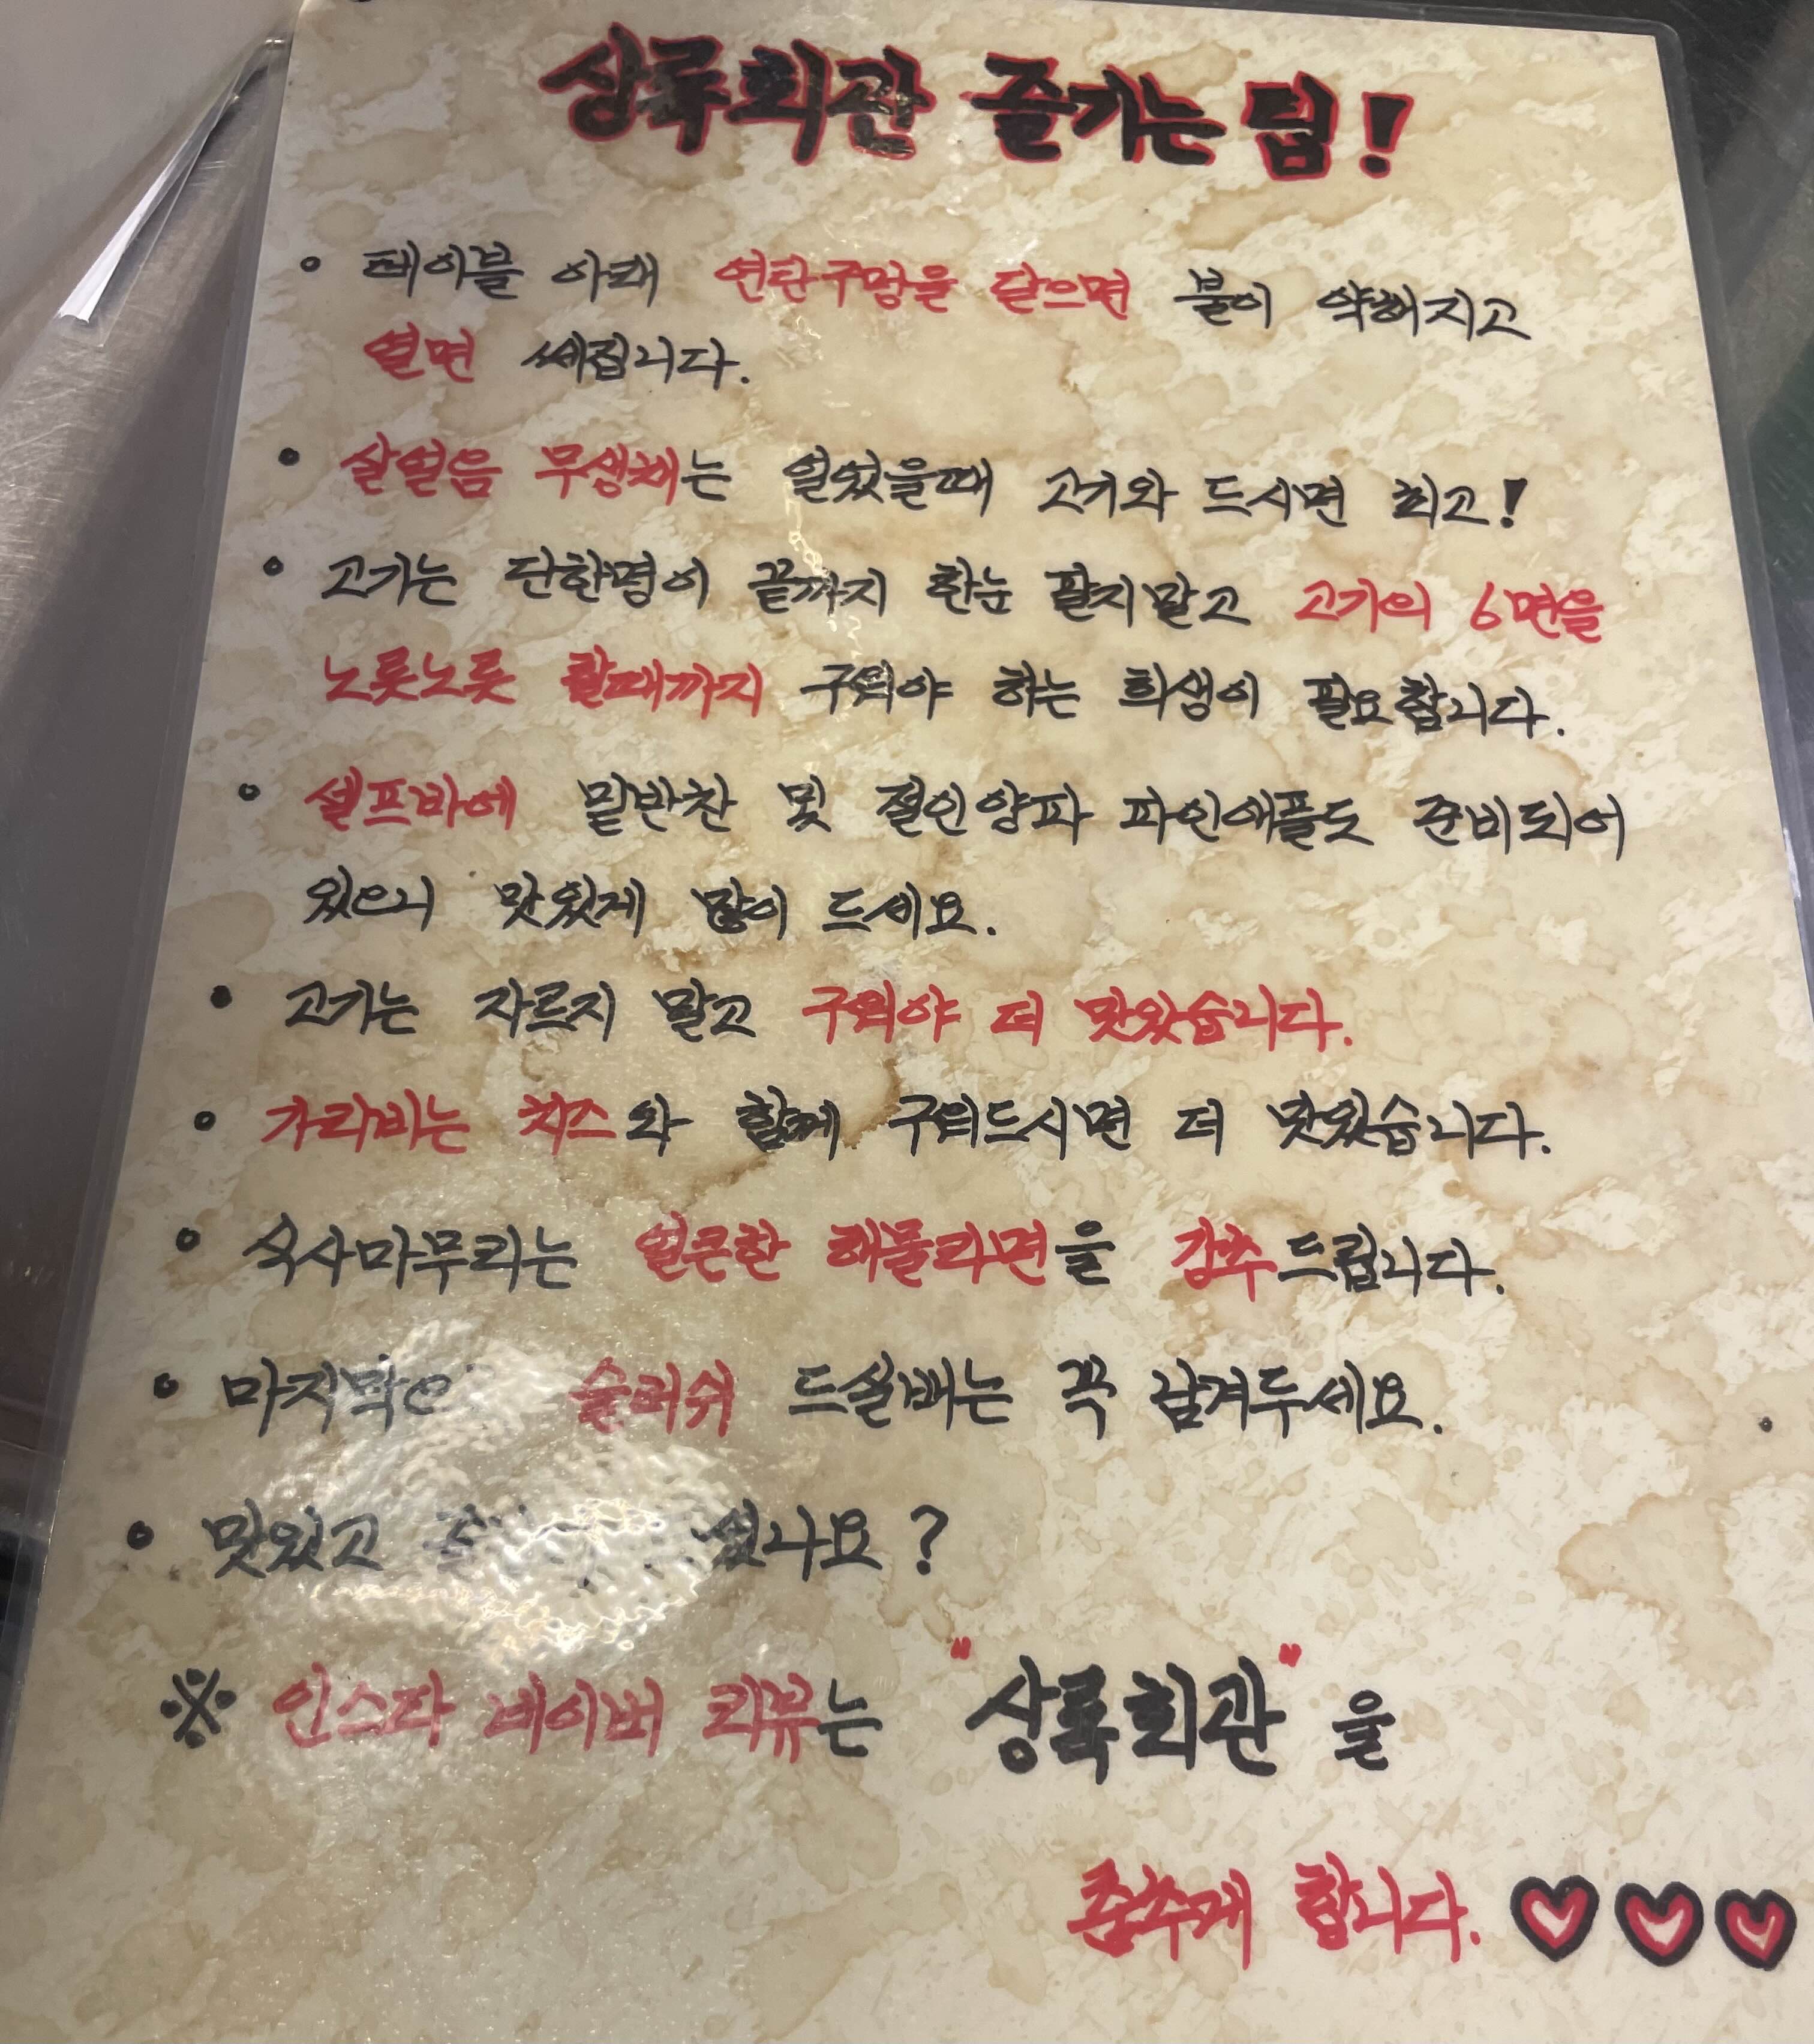 상록회관 즐기는 팁!
테이블 아래 연탄구멍을 닫으면 불이 약해지고
열면 쎄집니다.
살얼음 무생채는 얼었을때 고기와 드시면 최고!
고기는 단한명이 끝까지 한눈 팔지말고 고기의 6면을
노릇노릇 할때까지 구워야 하는 희생이 필요합니다.
셀프바에 밑반찬 및 절인양파 파인애플도 준비되어
있으니 맛있게 많이 드세요.
고기는 자르지 말고 구워야 더 맛있습니다.
가리비는 치즈와 함께 구워드시면 더 맛있습니다.
식사마무리는 얼큰한 해물라면을 강추드립니다.
마지막으 슬러쉬 드실배는 꼭 남겨두세요.
맛있고 셨나요?
※ 인스타 네이버 리뷰는 "상록회관"을
춤추게 합니다. ♡♡♡